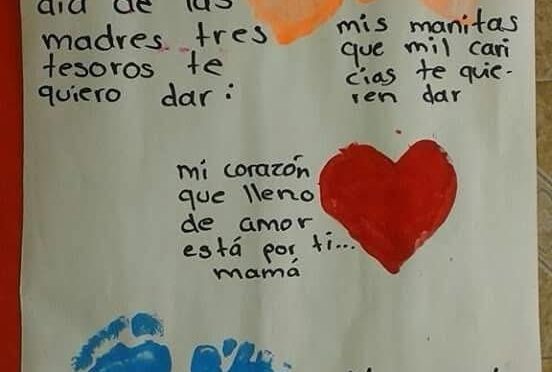 día de las
madres tres
tesoros te
quiero dar:
mis manitas
que mil cari
cias te quie-
ren dar
mi corazón
que lleno
de amor
está por ti...
mamá